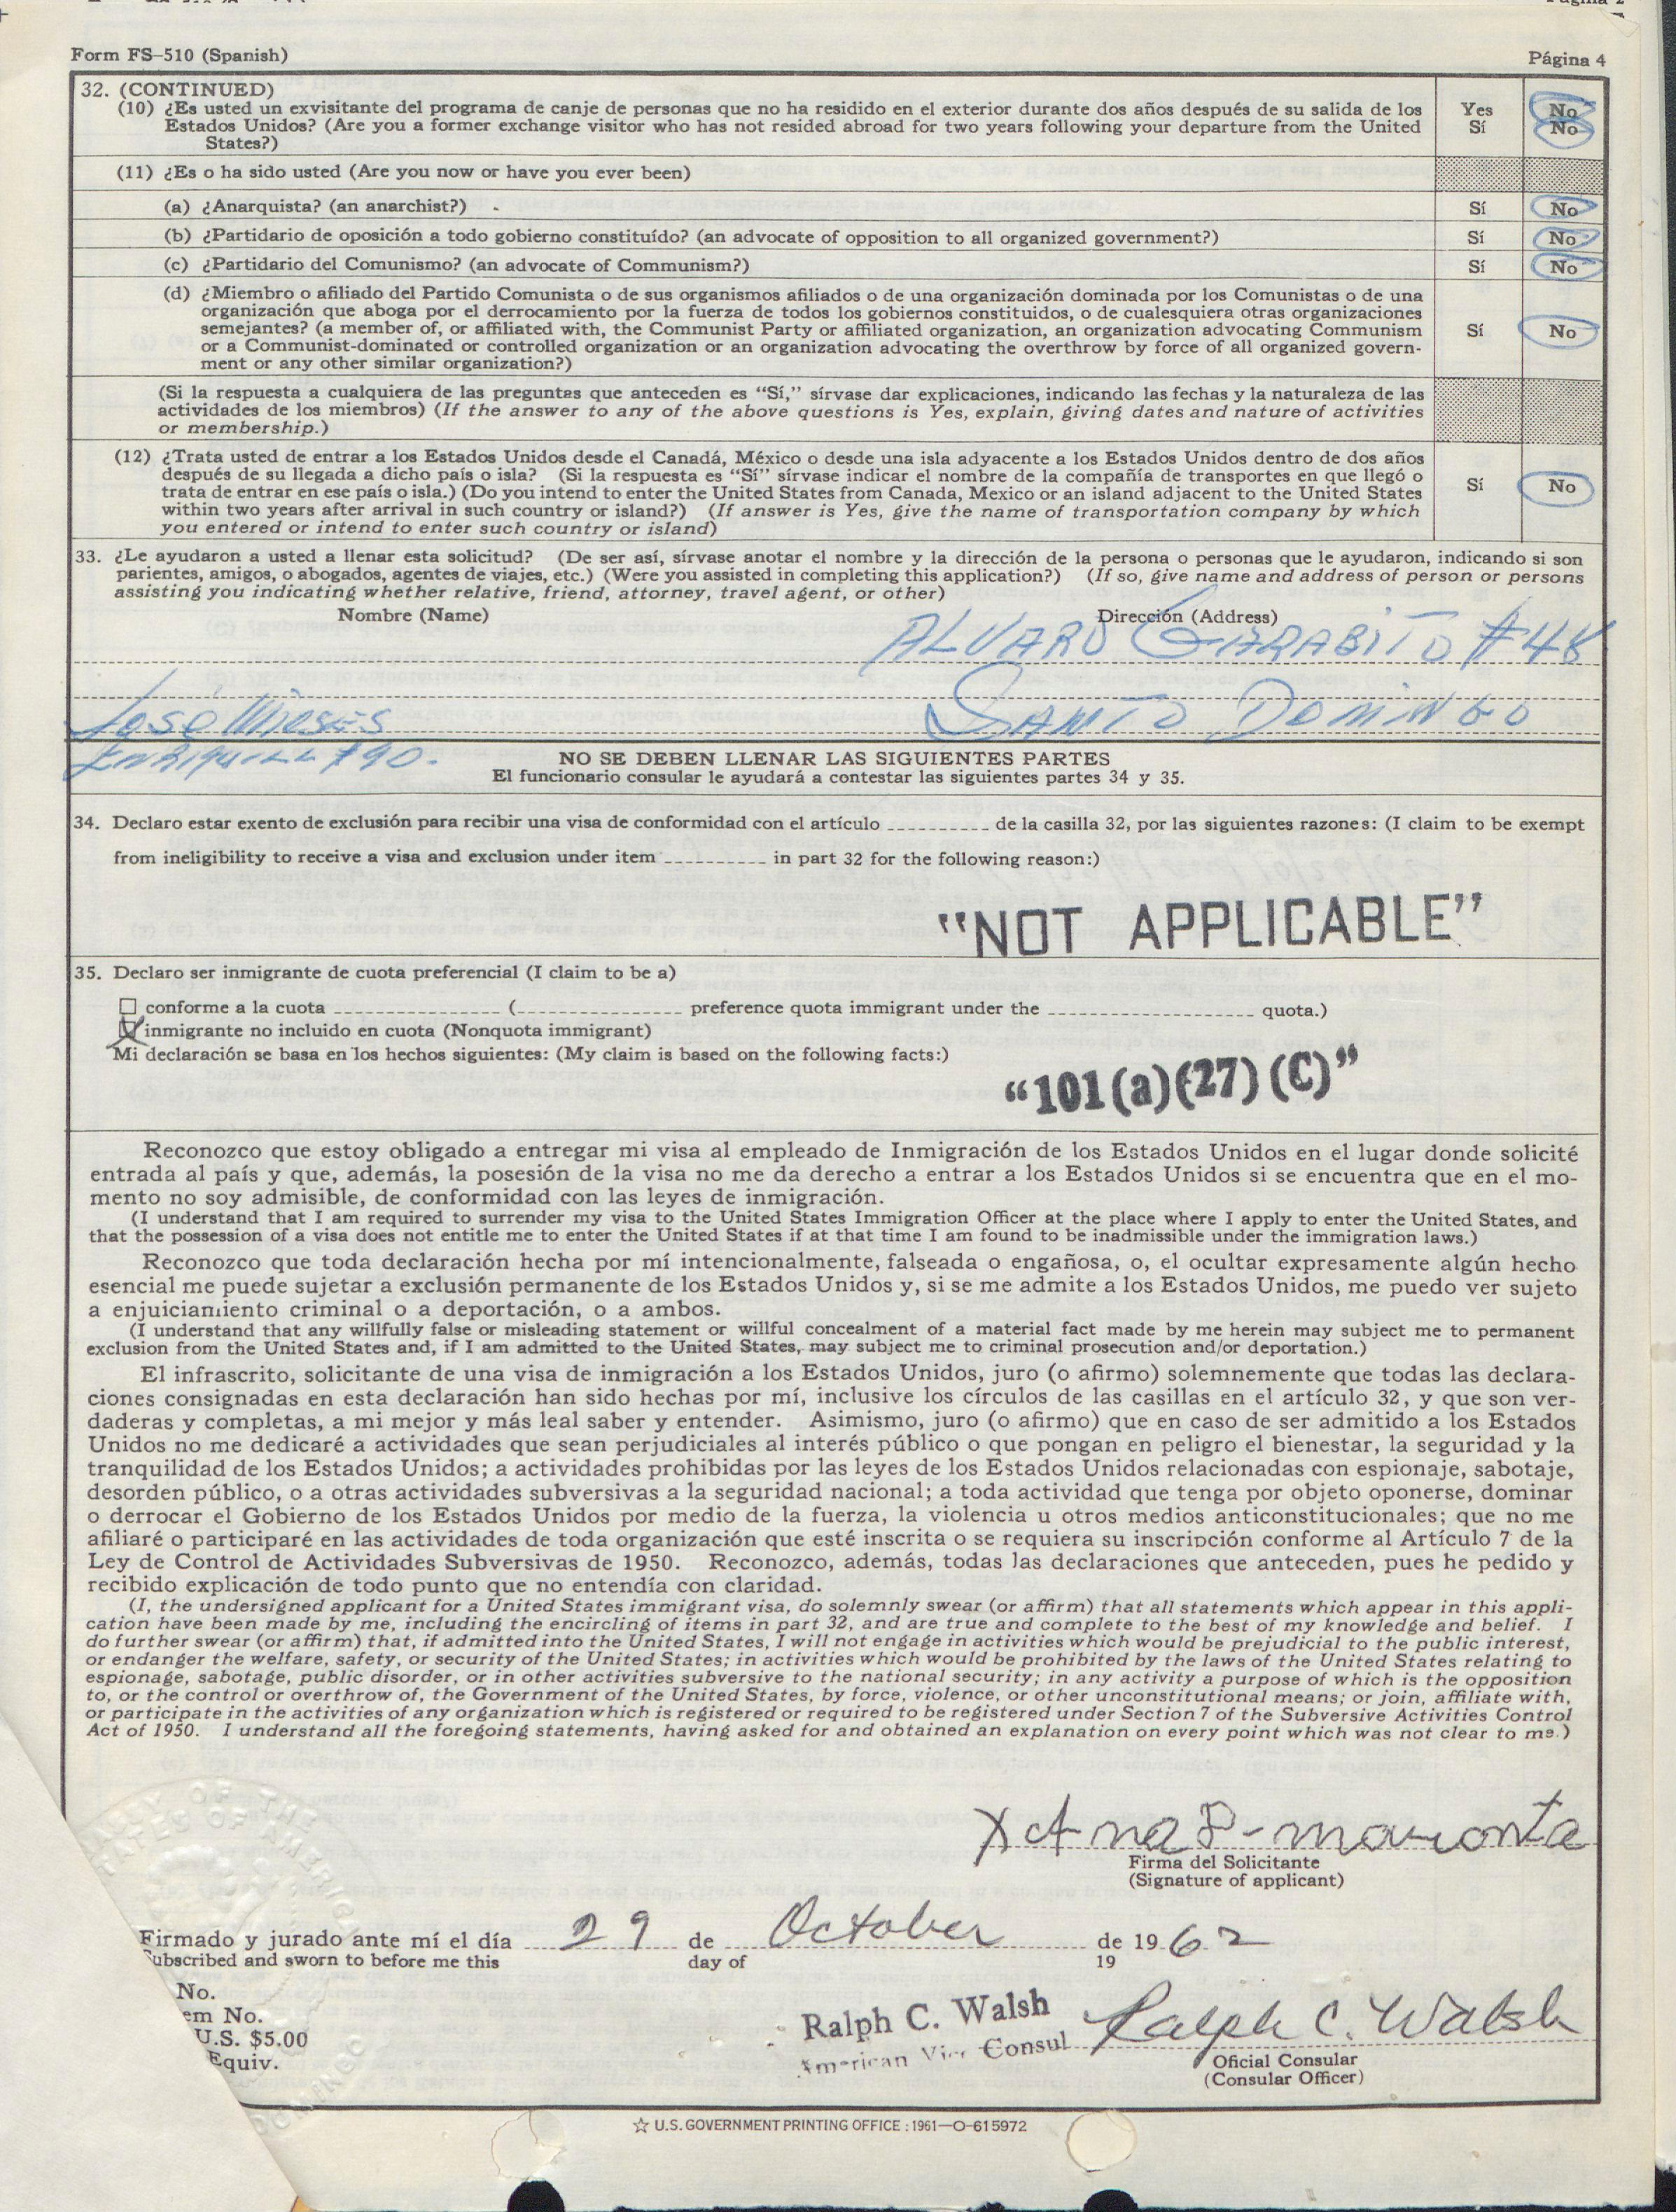 Form FS-510 (Spanish)
Página 4
32. (CONTINUED)
(10) ¿Es usted un exvisitante del programa de canje de personas que no ha residido en el exterior durante dos años después de su salida de los
Estados Unidos? (Are you a former exchange visitor who has not resided abroad for two years following your departure from the United
States?)
Yes No
Sí No
(11) ¿Es o ha sido usted (Are you now or have you ever been)
(a) ¿Anarquista? (an anarchist?) Sí No
(b) ¿Partidario de oposición a todo gobierno constituído? (an advocate of opposition to all organized government?) Sí No
(c) ¿Partidario del Comunismo? (an advocate of Communism?) Sí No
(d) ¿Miembro o afiliado del Partido Comunista o de sus organismos afiliados o de una organización dominada por los Comunistas o de una
organización que aboga por el derrocamiento por la fuerza de todos los gobiernos constituidos, o de cualesquiera otras organizaciones
semejantes? (a member of, or affiliated with, the Communist Party or affiliated organization, an organization advocating Communism
or a Communist-dominated or controlled organization or an organization advocating the overthrow by force of all organized govern-
ment or any other similar organization?)
Sí No
(Si la respuesta a cualquiera de las preguntas que anteceden es “Sí,” sírvase dar explicaciones, indicando las fechas y la naturaleza de las
actividades de los miembros) (If the answer to any of the above questions is Yes, explain, giving dates and nature of activities
or membership.)
(12) ¿Trata usted de entrar a los Estados Unidos desde el Canadá, México o desde una isla adyacente a los Estados Unidos dentro de dos años
después de su llegada a dicho país o isla? (Si la respuesta es “Sí” sírvase indicar el nombre de la compañía de transportes en que llegó o
trata de entrar en ese país o isla.) (Do you intend to enter the United States from Canada, Mexico or an island adjacent to the United States
within two years after arrival in such country or island?) (If answer is Yes, give the name of transportation company by which
you entered or intend to enter such country or island)
Sí No
33. ¿Le ayudaron a usted a llenar esta solicitud? (De ser así, sírvase anotar el nombre y la dirección de la persona o personas que le ayudaron, indicando si son
parientes, amigos, o abogados, agentes de viajes, etc.) (Were you assisted in completing this application?) (If so, give name and address of person or persons
assisting you indicating whether relative, friend, attorney, travel agent, or other)
Nombre (Name) Dirección (Address)
ALVARO GARABITO #48
José Mieses SANTO DOMINGO
Enriquillo #90.
NO SE DEBEN LLENAR LAS SIGUIENTES PARTES
El funcionario consular le ayudará a contestar las siguientes partes 34 y 35.
34. Declaro estar exento de exclusión para recibir una visa de conformidad con el artículo de la casilla 32, por las siguientes razones: (I claim to be exempt
from ineligibility to receive a visa and exclusion under item in part 32 for the following reason:)
"NOT APPLICABLE"
35. Declaro ser inmigrante de cuota preferencial (I claim to be a)
conforme a la cuota ( preference quota immigrant under the quota.)
inmigrante no incluido en cuota (Nonquota immigrant)
Mi declaración se basa en los hechos siguientes: (My claim is based on the following facts:)
“101(a)(27)(C)”
Reconozco que estoy obligado a entregar mi visa al empleado de Inmigración de los Estados Unidos en el lugar donde solicité
entrada al país y que, además, la posesión de la visa no me da derecho a entrar a los Estados Unidos si se encuentra que en el mo-
mento no soy admisible, de conformidad con las leyes de inmigración.
(I understand that I am required to surrender my visa to the United States Immigration Officer at the place where I apply to enter the United States, and
that the possession of a visa does not entitle me to enter the United States if at that time I am found to be inadmissible under the immigration laws.)
Reconozco que toda declaración hecha por mí intencionalmente, falseada o engañosa, o, el ocultar expresamente algún hecho
esencial me puede sujetar a exclusión permanente de los Estados Unidos y, si se me admite a los Estados Unidos, me puedo ver sujeto
a enjuiciamiento criminal o a deportación, o a ambos.
(I understand that any willfully false or misleading statement or willful concealment of a material fact made by me herein may subject me to permanent
exclusion from the United States and, if I am admitted to the United States, may subject me to criminal prosecution and/or deportation.)
El infrascrito, solicitante de una visa de inmigración a los Estados Unidos, juro (o afirmo) solemnemente que todas las declara-
ciones consignadas en esta declaración han sido hechas por mí, inclusive los círculos de las casillas en el artículo 32, y que son ver-
daderas y completas, a mi mejor y más leal saber y entender. Asimismo, juro (o afirmo) que en caso de ser admitido a los Estados
Unidos no me dedicaré a actividades que sean perjudiciales al interés público o que pongan en peligro el bienestar, la seguridad y la
tranquilidad de los Estados Unidos; a actividades prohibidas por las leyes de los Estados Unidos relacionadas con espionaje, sabotaje,
desorden público, o a otras actividades subversivas a la seguridad nacional; a toda actividad que tenga por objeto oponerse, dominar
o derrocar el Gobierno de los Estados Unidos por medio de la fuerza, la violencia u otros medios anticonstitucionales; que no me
afiliaré o participaré en las actividades de toda organización que esté inscrita o se requiera su inscripción conforme al Artículo 7 de la
Ley de Control de Actividades Subversivas de 1950. Reconozco, además, todas las declaraciones que anteceden, pues he pedido y
recibido explicación de todo punto que no entendía con claridad.
(I, the undersigned applicant for a United States immigrant visa, do solemnly swear (or affirm) that all statements which appear in this appli-
cation have been made by me, including the encircling of items in part 32, and are true and complete to the best of my knowledge and belief. I
do further swear (or affirm) that, if admitted into the United States, I will not engage in activities which would be prejudicial to the public interest,
or endanger the welfare, safety, or security of the United States; in activities which would be prohibited by the laws of the United States relating to
espionage, sabotage, public disorder, or in other activities subversive to the national security; in any activity a purpose of which is the opposition
to, or the control or overthrow of, the Government of the United States, by force, violence, or other unconstitutional means; or join, affiliate with,
or participate in the activities of any organization which is registered or required to be registered under Section 7 of the Subversive Activities Control
Act of 1950. I understand all the foregoing statements, having asked for and obtained an explanation on every point which was not clear to me.)
x Ana
Firma del Solicitante
(Signature of applicant)
Firmado y jurado ante mí el día 29 de October de 1962
Subscribed and sworn to before me this day of 19
No.
em No.
U.S. $5.00
Equiv.
Ralph C. Walsh Ralph C. Walsh
American Vice Consul
Oficial Consular
(Consular Officer)
☆ U.S. GOVERNMENT PRINTING OFFICE : 1961—O-615972